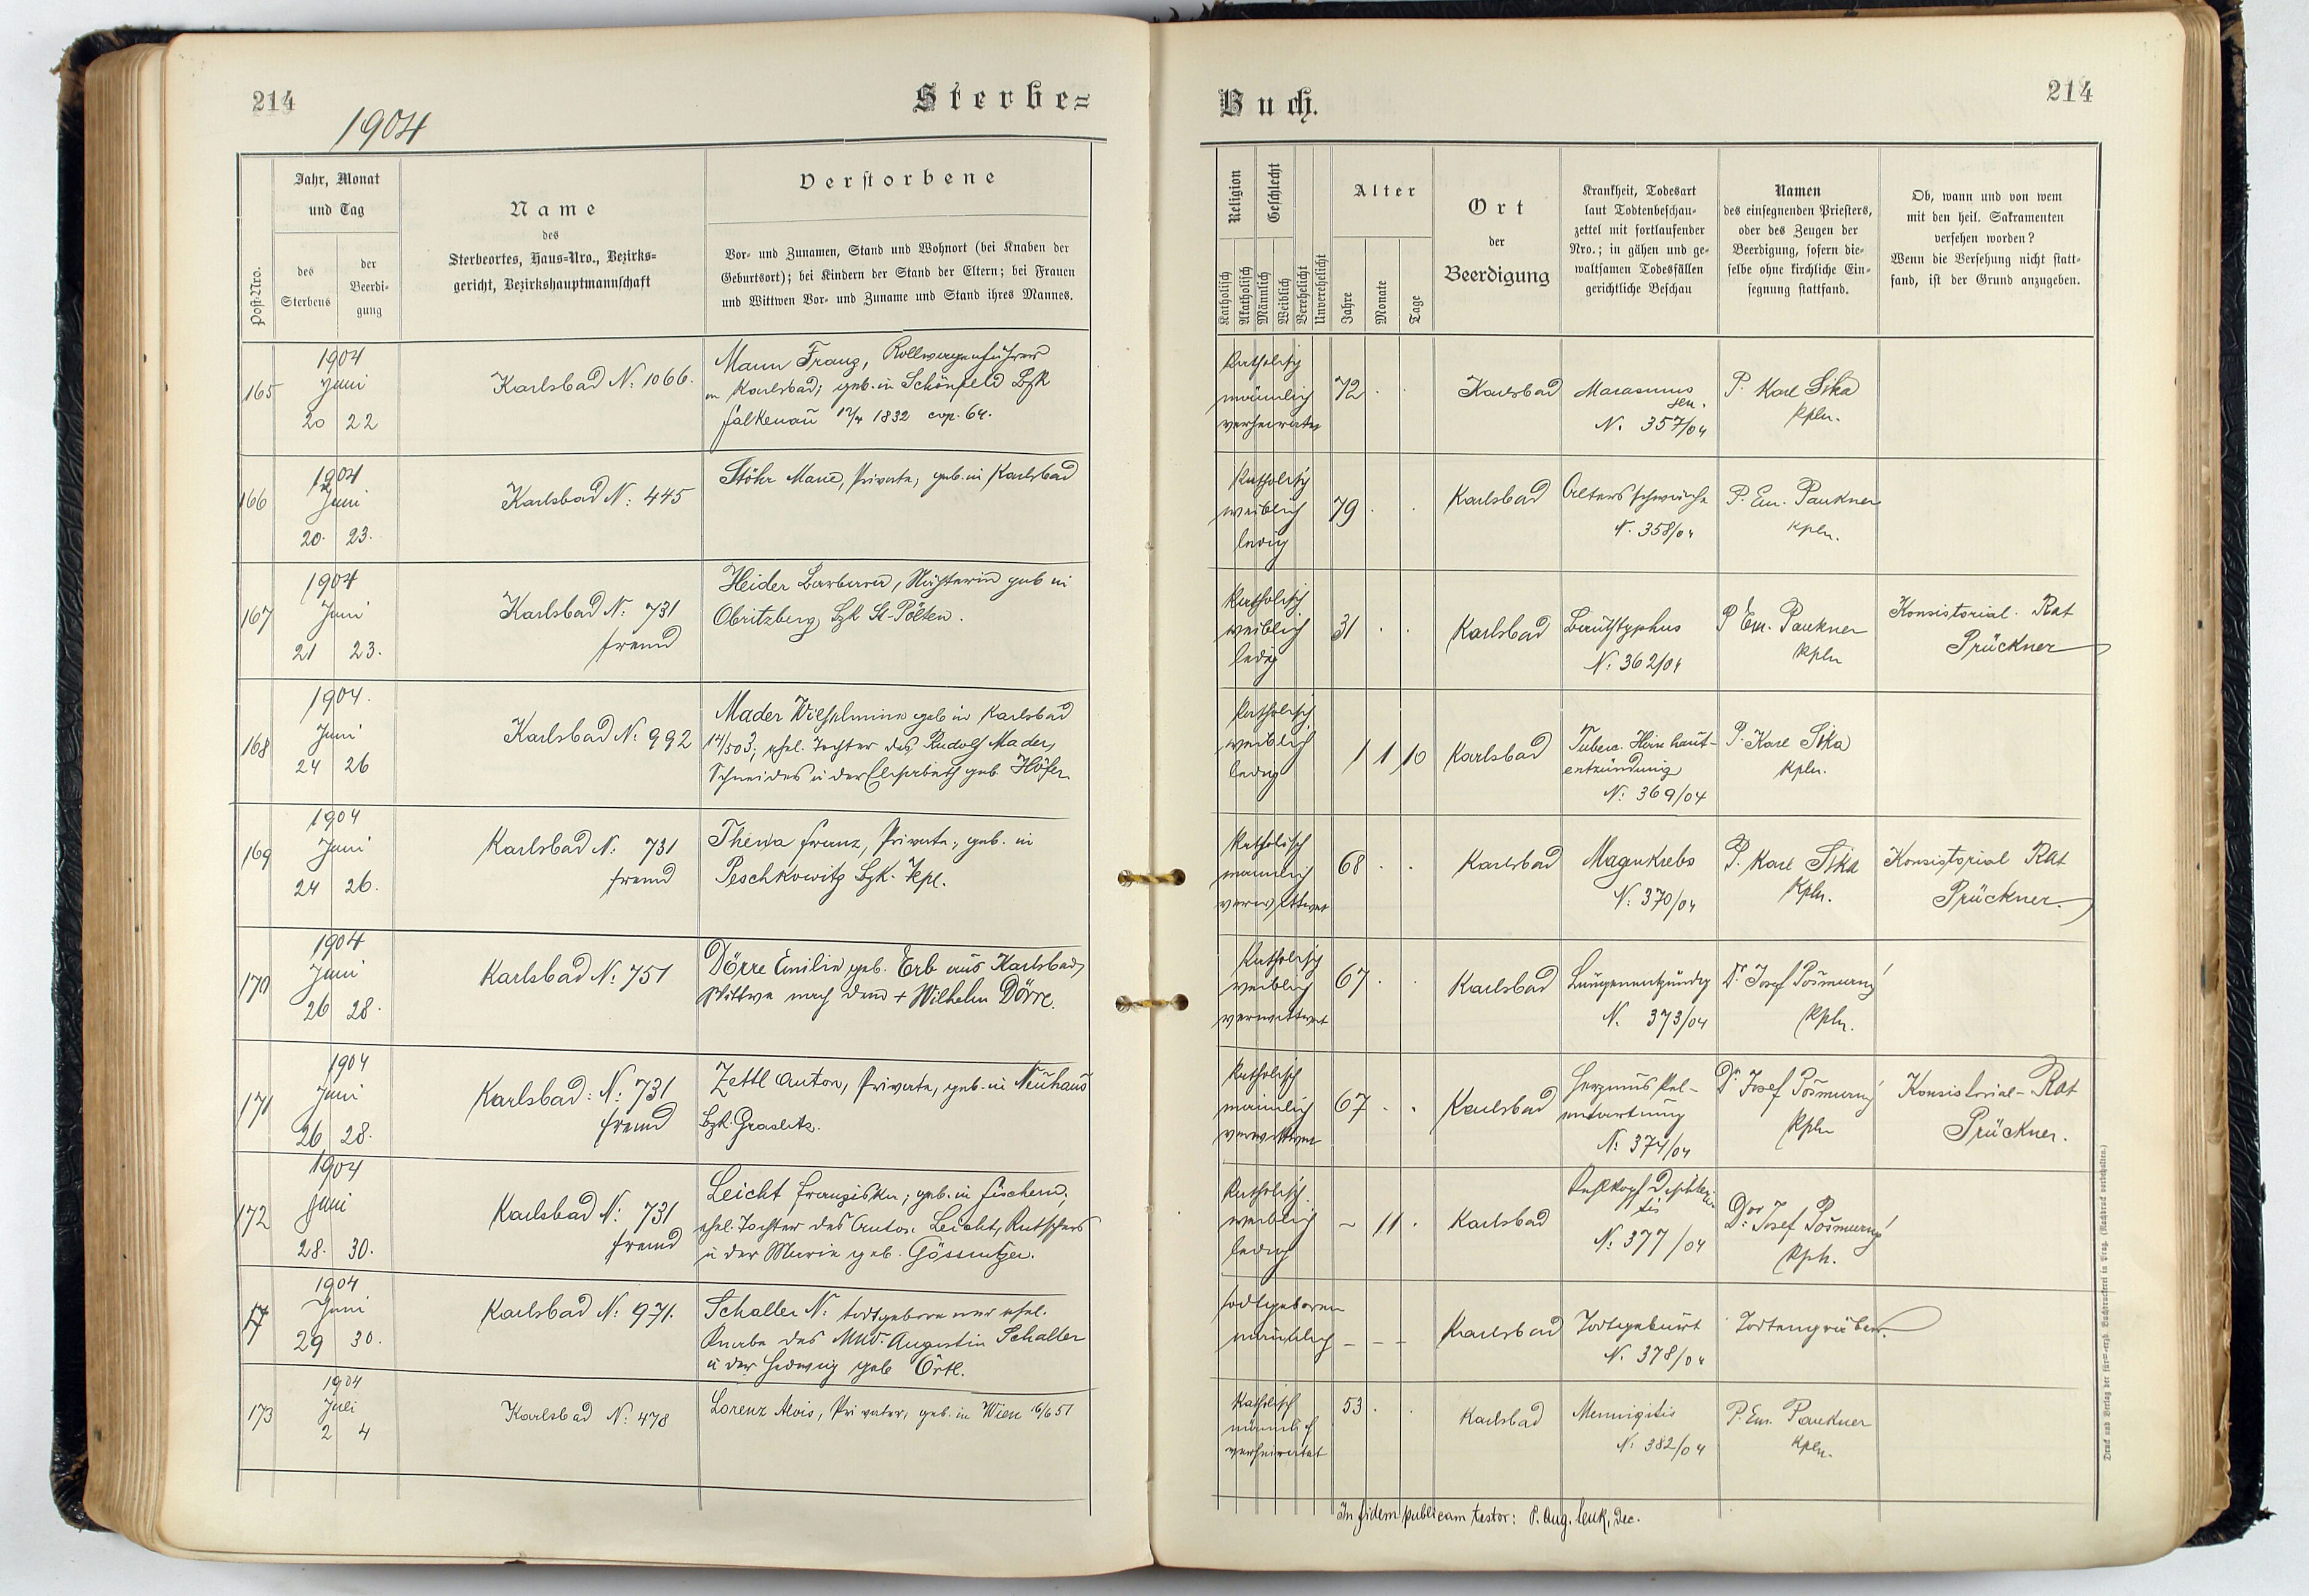 214
1904
Sterbe=
Post-Nro.
Jahr, Monat
und Tag
des
Sterbens
der
Beerdi-
gung
Name
des
Sterbeortes, Haus-Nro., Bezirks-
gericht, Bezirkshauptmannschaft
Verstorbene
Vor- und Zunamen, Stand und Wohnort (bei Knaben der
Geburtsort); bei Kindern der Stand der Eltern; bei Frauen
und Wittwen Vor- und Zuname und Stand ihres Mannes.
165
1904
Juni
20 22
Karlsbad N: 1066.
Mann Franz, Rollwagenführer
in Karlsbad; geb. in Schönfeld Bzk
Falkenau 1832 cop. 64.
166
1904
Juni
20. 23.
Karlsbad N: 445
Stöhr Marie, Private, geb. in Karlsbad
167
1904
Juni
21 23.
Karlsbad N: 731
fremd
Heider Barbara, Näherin geb in
Obritzberg, Bzk St-Pölten.
168
1904.
Juni
24 26
Karlsbad N: 992
Mader Wilhelmine geb in Karlsbad
14/5 03; ehel. Tochter des Rudolf Mader,
Schneiders u der Elisabeth geb Höfer
169
1904
Juni
24 26.
Karlsbad N: 731
fremd
Franz, Private, geb. in
Peschkowitz Bzk.
170
1904
Juni
26 28.
Karlsbad N: 751
Dörre Emilie geb. Erb aus Karlsbad,
Wittwe nach dem + Wilhelm Dörre.
171
1904
Juni
26 28.
Karlsbad: N: 731
fremd
Zettl Anton, Private, geb. in Neuhaus
Bzk. Graslitz.
172
1904
Juni
28. 30.
Karlsbad N: 731
fremd
Leicht Franziska; geb. in Fischern;
ehel. Tochter des Anton Leicht, Kutschers
u der Marie geb. Gössnitzer.
17
1904
Juni
29 30.
Karlsbad N: 971.
Schaller N: todtgeborener ehel.
Knabe des MUD. Augustin Schaller
u der Hedwig geb Örtl.
173
1904
Juli
2 4
Karlsbad N: 478
Lorenz Alois, Privater, geb. in Wien 16/6 51
Buch.
214
Religion
Katholisch
Akatholisch
Geschlecht
Männlich
Weiblich
Verehelicht
Unverehelicht
Alter
Jahre
Monate
Tage
Ort
der
Beerdigung
Krankheit, Todesart
laut Todtenbeschau-
zettel mit fortlaufender
Nro.; in gähen und ge-
waltsamen Todesfällen
gerichtliche Beschau
Namen
des einsegnenden Priesters,
oder des Zeugen der
Beerdigung, sofern die-
selbe ohne kirchliche Ein-
segnung stattfand.
Ob, wann und von wem
mit den heil. Sakramenten
versehen worden?
Wenn die Versehung nicht statt-
fand, ist der Grund anzugeben.
Katholisch
männlich
verheiratet
72 . .
Karlsbad
Marasmus
sen.
N. 357/04
P. Karl Sika
Kpln.
Katholisch
weiblich
ledig
79 . .
Karlsbad
Altersschwäche
N. 358/04
P. Em. Paukner
Kpln.
Katholisch
weiblich
ledig
31 . .
Karlsbad
Bauchtyphus
N: 362/04
P Em. Paukner
Kpln
Konsistorial. Rat
Prückner
Katholisch
weiblich
ledig
1 1 10
Karlsbad
Tuberc. Hirnhaut-
entzündung
N: 369/04
P. Karl Sika
Kpln.
Katholisch
männlich
verwittwet
68 . .
Karlsbad
Magenkrebs
N: 370/04
P. Karl Sika
Kpln.
Konsistorial Rat
Prückner.
Katholisch
weiblich
verwittwet
67 . .
Karlsbad
Lungenentzündg
N. 373/04
Dr. Josef Pošmurný
Kpln.
Katholisch
männlich
verwittwet
67 . .
Karlsbad
Herzmuskel-
entartung
N: 374/04
Dr. Josef Pošmurný
Kpln
Konsistorial-Rat
Prückner.
Katholisch
weiblich
ledig
– 11 .
Karlsbad
Kehlkopf
N: 377/04
Dr. Josef Pošmurný
Kpln.
todtgeboren
männlich
– – –
Karlsbad
Todtgeburt
N. 378/04
Todtengräber.
Katholisch
männlich
verheiratet
53 . .
Karlsbad
Meningitis
N: 382/04
P. Em. Paukner
Kpln.
In fidem publicam testor: P. Aug. Cenk, Dec.
Druck und Verlag der fürst-erzb. Buchdruckerei in Prag. (Nachdruck vorbehalten.)